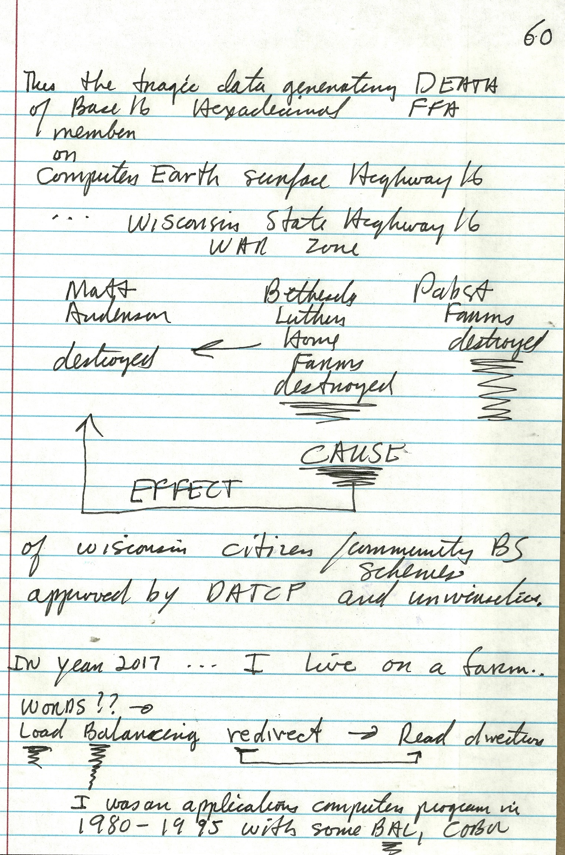 60
Thus the tragic data generating DEATH
of Base 16 Hexadecimal FFA
member
on
Computers Earth surface Highway 16
... Wisconsin State Highway 16
WAR Zone
Matt Bethesda Pabst
Anderson Luthern Farms
destroyed ← Home destroyed
Farms
destroyed
CAUSE
EFFECT
of wisconsin citizen/community BS
schemes
approved by DATCP and universities.
IN year 2017 ... I live on a farm..
WORDS?? →
Load Balancing redirect → Read directions
I was an applications computer program in
1980-1995 with some BAL, COBOL